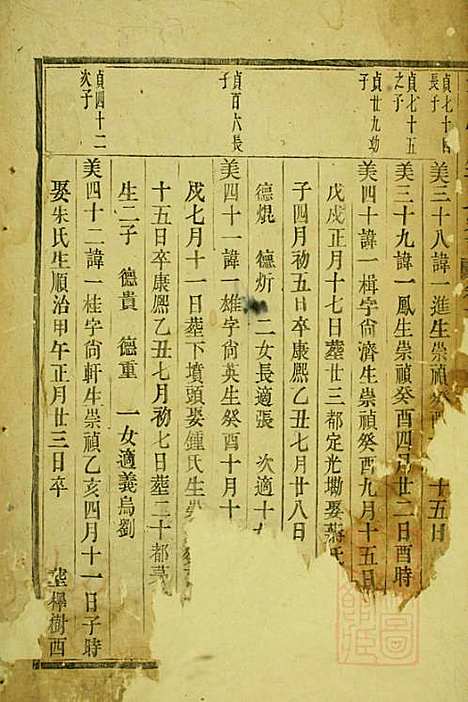 貞七十四
長子
美三十八諱一進生崇禎癸酉
十五日
貞七十五
之子
美三十九諱一鳳生崇禎癸酉四月廿二日酉時
貞廿九幼
子
美四十諱一楫字尙濟生崇禎癸酉九月十五日
戊戌正月十七日塟廿三都定光坳娶蔣氏
子四月初五日卒康熙乙丑七月廿八日
德焜 德炘 二女長適張 次適十
貞百六長
子
美四十一諱一雄字尙英生癸酉十月十
戍七月十一日塟下墳頭娶鍾氏生崇
十五日卒康熙乙丑七月初七日塟二十都
生二子 德貴 德重 一女適義烏劉
貞四十二
次子
美四十二諱一桂字尙軒生崇禎乙亥四月十一日子時
娶朱氏生順治甲午正月廿三日卒 塟櫸樹西